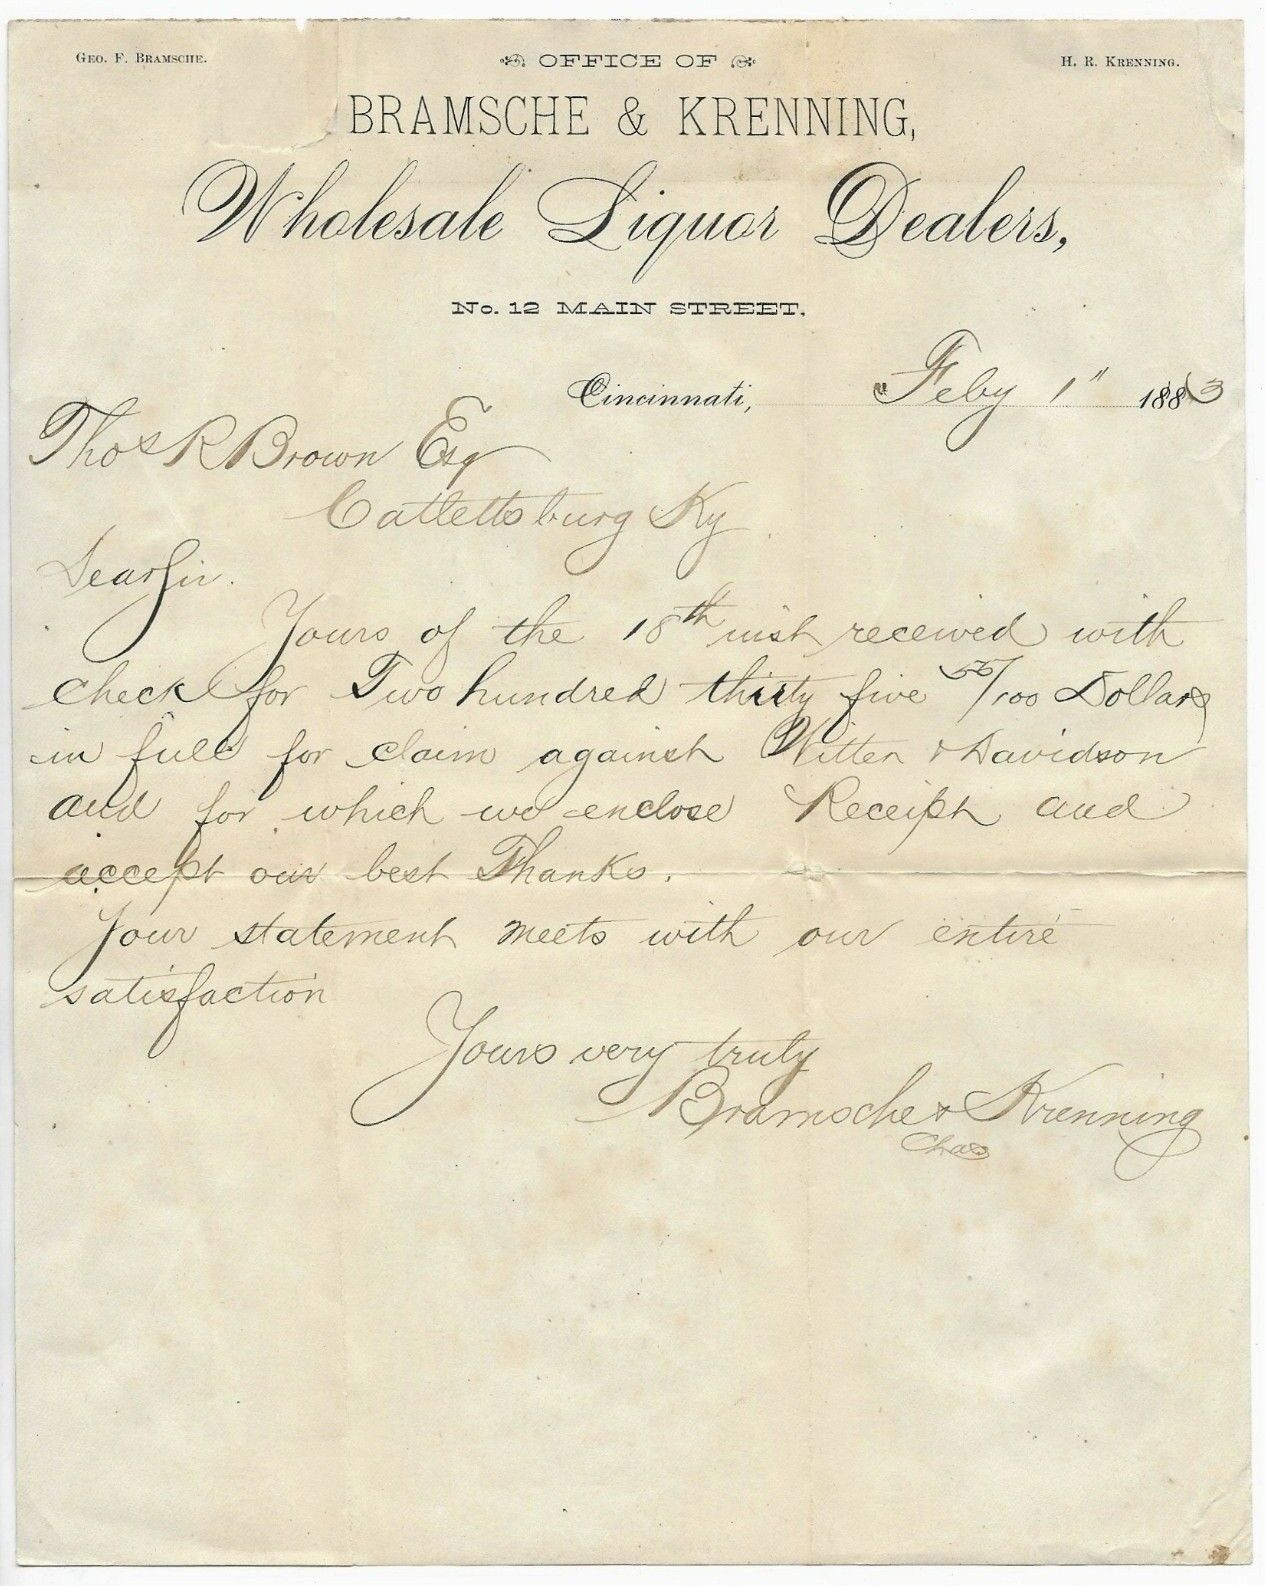 Geo. F. Bramsche.
OFFICE OF
H. R. Krenning.
BRAMSCHE & KRENNING,
Wholesale Liquor Dealers,
No. 12 MAIN STREET.
Cincinnati, Feby 1" 1883
Thos R Brown Esq
Catlettsburg Ky
Dear Sir.
Yours of the 18th inst received with
check for Two hundred thirty five 55/100 Dollars
in full for claim against Witten & Davidson
and for which we enclose Receipt and
accept our best Thanks.
Your statement meets with our entire
satisfaction
Yours very truly
Bramsche & Krenning
Chas